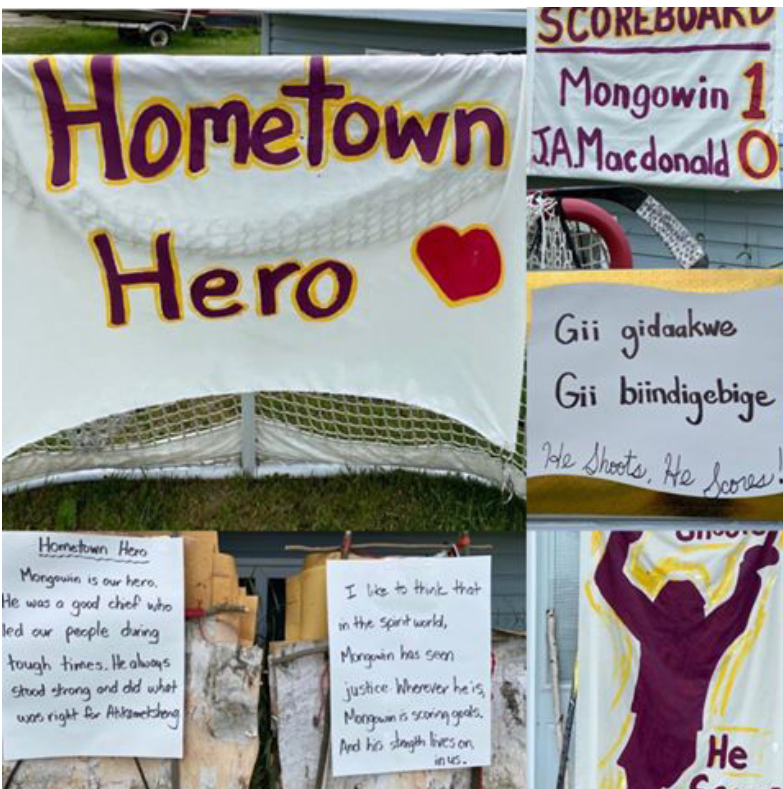 Hometown
Hero
SCOREBOARD
Mongowin 1
J.A.Macdonald 0
Gii gidaakwe
Gii biindigebige
He Shoots, He Scores!
Hometown Hero
Mongowin is our hero.
He was a good chief who
led our people during
tough times. He always
stood strong and did what
was right for
I like to think that
in the spirit world,
Mongowin has seen
justice. Wherever he is,
Mongowin is scoring goals.
And his strength lives on
in us.
He